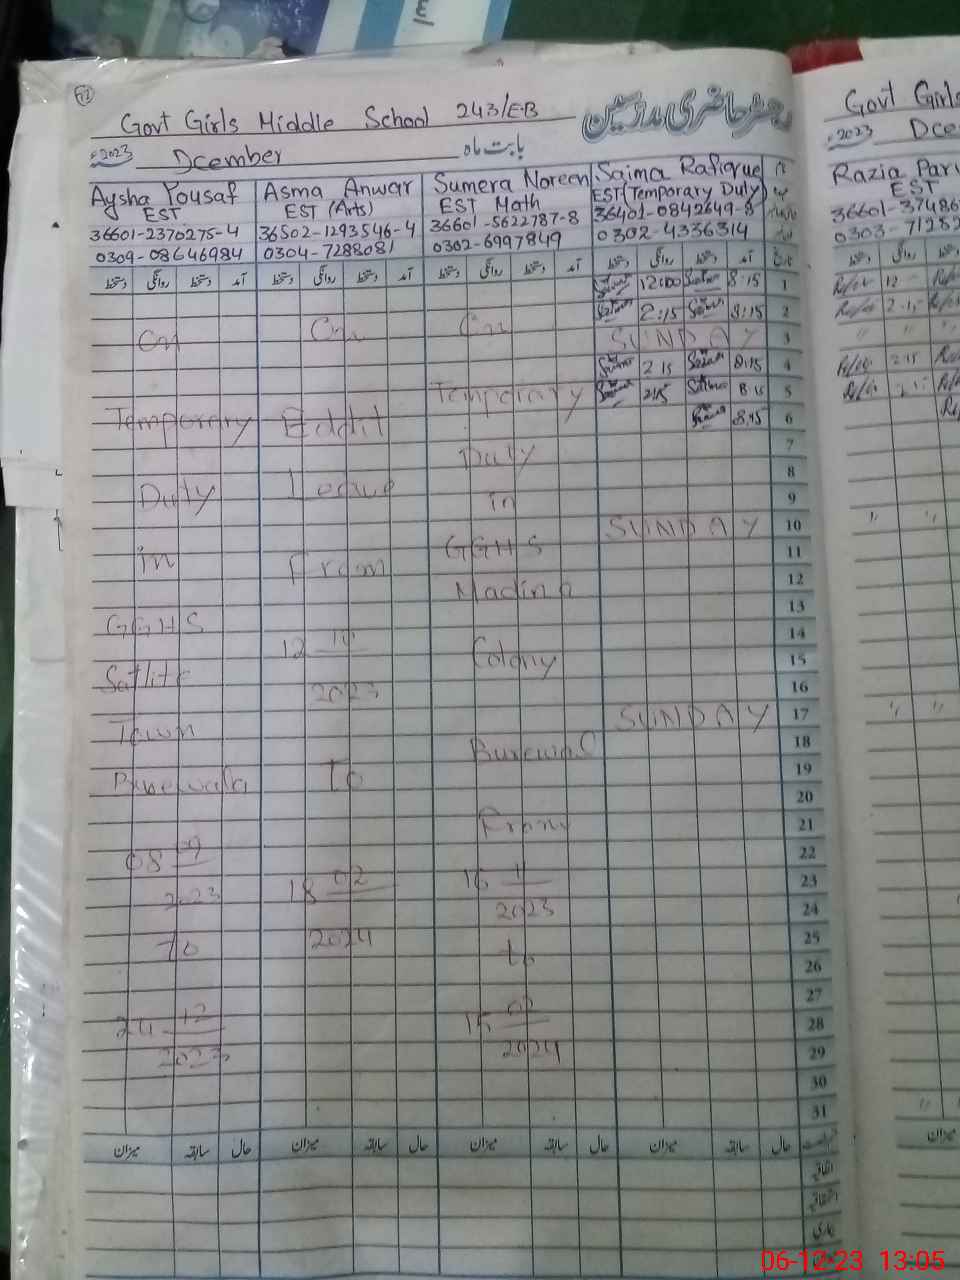 Govt Girls Middle School 243/E.B
رجسٹر حاضری مدرسین
2023 Dcember بابت ماہ
Aysha Yousaf
EST
36601-2370275-4
0309-08646984
Asma Anwar
EST (Arts)
36502-1293546-4
0304-7288081
Sumera Noreen
EST Math
36601-5622787-8
0302-6997849
Saima Rafique
EST (Temporary Duty)
36401-0842649-8
0302-4336314
دستخط روانگی دستخط آمد
دستخط روانگی دستخط آمد
دستخط روانگی دستخط آمد
دستخط روانگی دستخط آمد تاریخ
12:00 8:15 1
2:15 8:15 2
SUNDAY 3
2 15 8:15 4
2:15 8 15 5
8:15 6
7
8
9
SUNDAY 10
11
12
13
14
15
16
SUNDAY 17
18
19
20
21
22
23
24
25
26
27
28
29
30
31
On
Temporary
Duty
in
GGHS
Satlite
Town
Burewala
08 09
2023
To
24 12
2023
On
From
12
2023
To
18 02
2024
On
Temporary
Duty
in
GGHS
Madina
Colony
From
16 11
2023
to
15 02
2024
میزان سابقہ حال
میزان سابقہ حال
میزان سابقہ حال
میزان سابقہ حال
اتفاقیہ
استحقاقیہ
بیماری
Govt Girls
2023 Dce
Razia Parv
EST
36601-37486
0303-71252
06-12-23 13:05